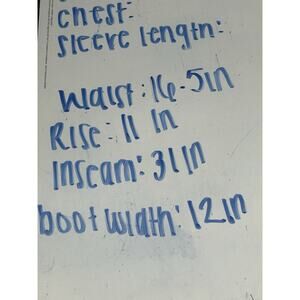 chest:
sleeve length:
Waist: 16.5in
Rise: 11 in
Inseam: 31in
boot width: 12in